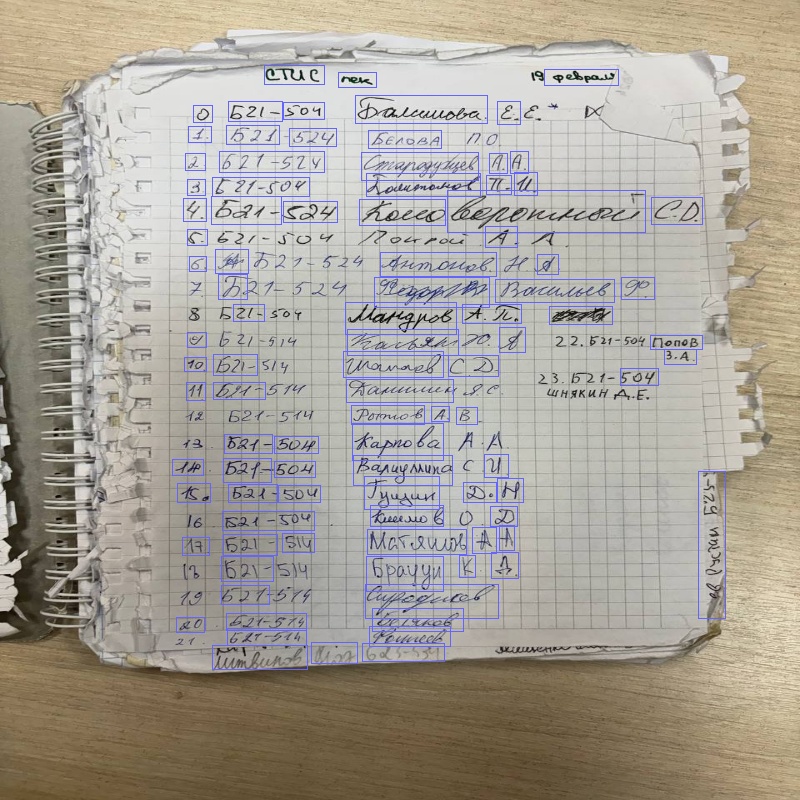 СТИС лек 19 февраля
0 Б21-504 Балашова Е.Е.*
1. Б21-524 БЕЛОВА П О.
2 Б21-524 Стародубцев А.А.
3 Б21-504 П.И.
4. Б21-524 Коловоротный С.D.
5. Б21-504 А. А.
6. Б21-524 Антонов Н. А
7. Б21-524 Васильев Ф.
8 Б21-504 Мандров А.П.
9 Б21-514 Касьян Ю. А
10 Б21-514 С D.
11 Б21-514 Данилин Я.С.
12 Б21-514 А В.
13 Б21-504 Карпова А.А.
14. Б21-504 Валиуллина С И
15. Б21-504 Гущин Д.Н
16 Б21-504 Климов О. D
17 Б21-514 Матяшов А А
18 Б21-514 Брауун К А.
19 Б21-514 Сиродиков
20 Б21-514 Беляков
21. Б21-514
Литвинов
22. Б21-504 ПОПОВ
З.А.
23. Б21-504
ШНЯКИН Д.Е.